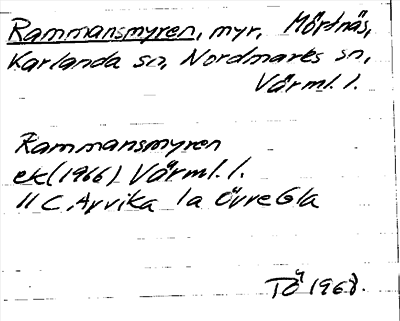 Rammansmyren, myr, Mörtnäs,
Karlanda sn, Nordmarks sn,
Värml. l.
Rammansmyren
ek (1966) Värml. l.
11 C, Arvika 1a Övre Gla
TÖ 1968.